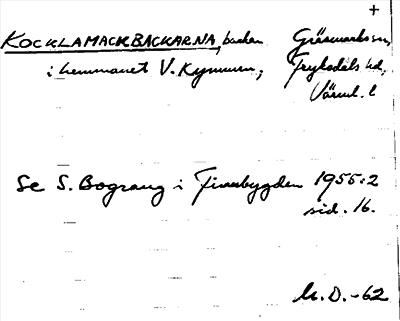 +
KOCKLAMACKBACKARNA, backar Gräsmarks sn,
i hemmanet V. Kymmen; Fryksdals hd,
Värml. l
Se S. Bograng i Finnbygden 1955:2
sid. 16.
M.D.-62